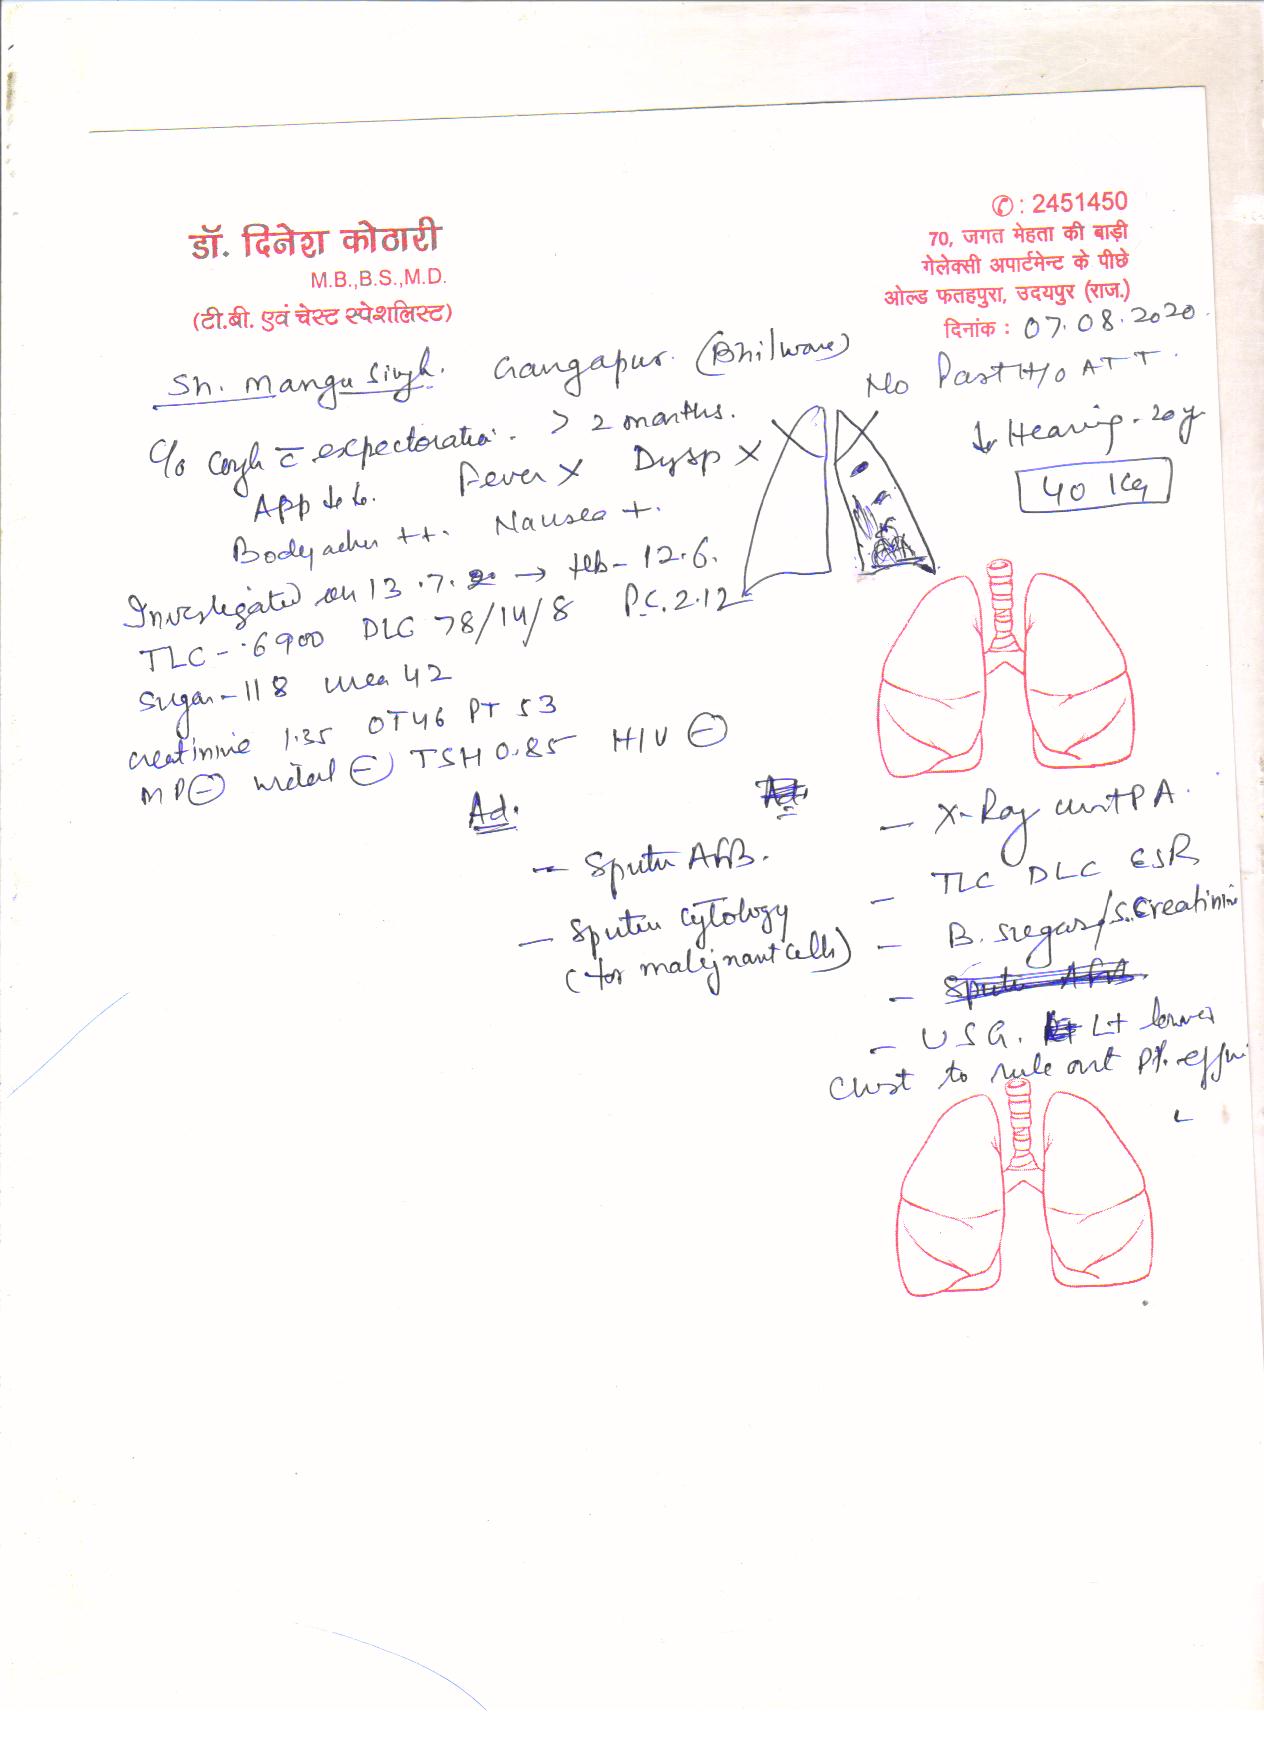 डॉ. दिनेश कोठारी
M.B.,B.S.,M.D.
(टी.बी. एवं चेस्ट स्पेशलिस्ट)
✆ : 2451450
70, जगत मेहता की बाड़ी
गेलेक्सी अपार्टमेन्ट के पीछे
ओल्ड फतहपुरा, उदयपुर (राज.)
दिनांक : 07.08.2020.
Sh. Mangu Singh. Gangapur. (Bhilware)
No Past H/o ATT.
↓ Hearing - 20 y
40 Kg
C/o Cough c̄ expectoration. > 2 months.
App ↓ ↓. Fever × Dysp ×
Bodyaches ++. Nausea +.
Investigated on 13.7. → Hb - 12.6.
TLC - 6900 DLC 78/14/8 P.C. 2.12
Sugar - 118 urea 42
creatinine 1.35 OT 46 PT 53
MP ⊖ widal ⊖ TSH 0.85 HIV ⊖
Ad.
- Sputum AFB.
- Sputum cytology
(for malignant cells)
- X-Ray chest PA.
- TLC DLC ESR
- B. sugar / S. Creatinin
- USG. Lt lower
Chest to rule out Pl. effu